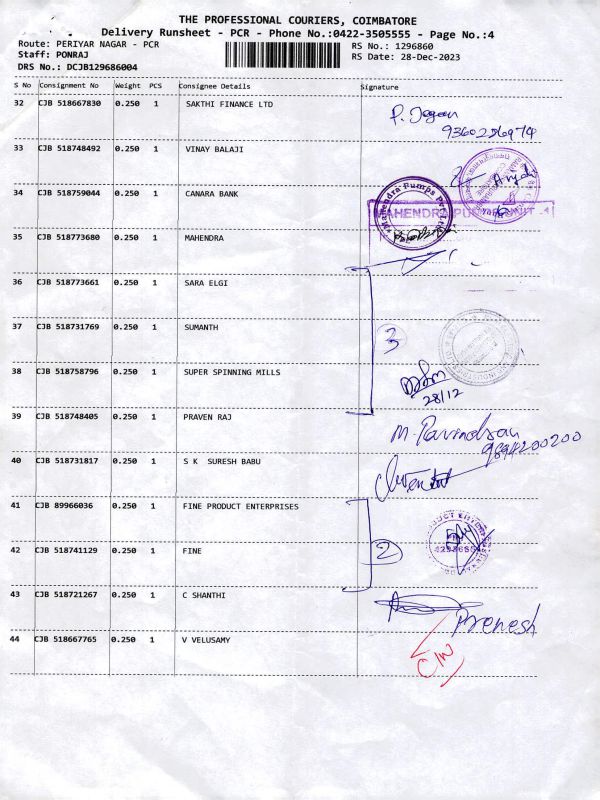 THE PROFESSIONAL COURIERS, COIMBATORE
Delivery Runsheet - PCR - Phone No.:0422-3505555 - Page No.:4
Route: PERIYAR NAGAR - PCR
RS No.: 1296860
Staff: PONRAJ
RS Date: 28-Dec-2023
DRS No.: DCJB129686004
S No Consignment No Weight PCS Consignee Details Signature
32 CJB 518667830 0.250 1 SAKTHI FINANCE LTD
P. Jagan
33 CJB 518748492 0.250 1 VINAY BALAJI
34 CJB 518759044 0.250 1 CANARA BANK
Mahendra Pumps Pvt. Ltd
MAHENDRA PUMPS UNIT - 4
35 CJB 518773680 0.250 1 MAHENDRA
36 CJB 518773661 0.250 1 SARA ELGI
37 CJB 518731769 0.250 1 SUMANTH
3
38 CJB 518758796 0.250 1 SUPER SPINNING MILLS
28/12
39 CJB 518748405 0.250 1 PRAVEN RAJ
M. Ravindran
9894200200
40 CJB 518731817 0.250 1 S K SURESH BABU
41 CJB 89966036 0.250 1 FINE PRODUCT ENTERPRISES
42 CJB 518741129 0.250 1 FINE
2
43 CJB 518721267 0.250 1 C SHANTHI
Prenesh
44 CJB 518667765 0.250 1 V VELUSAMY
C/N